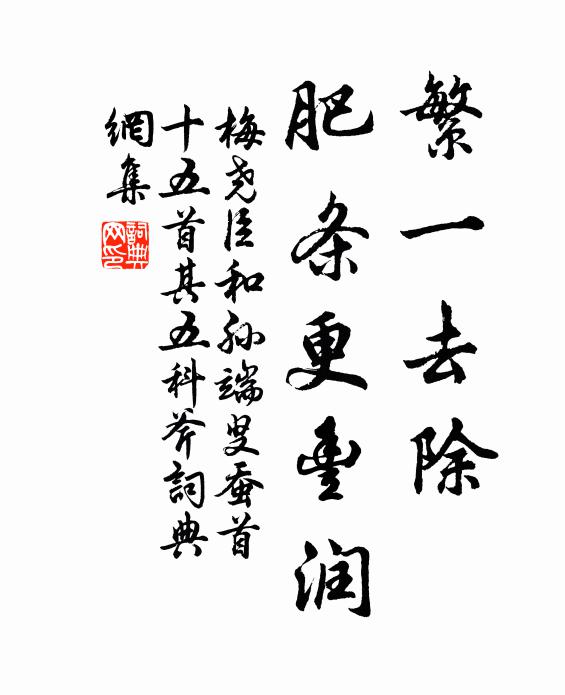 繁一去除
肥条更豐润
梅尧臣和孙端叟蚕首
十五首其五科斧詞典
網集
詞典网印